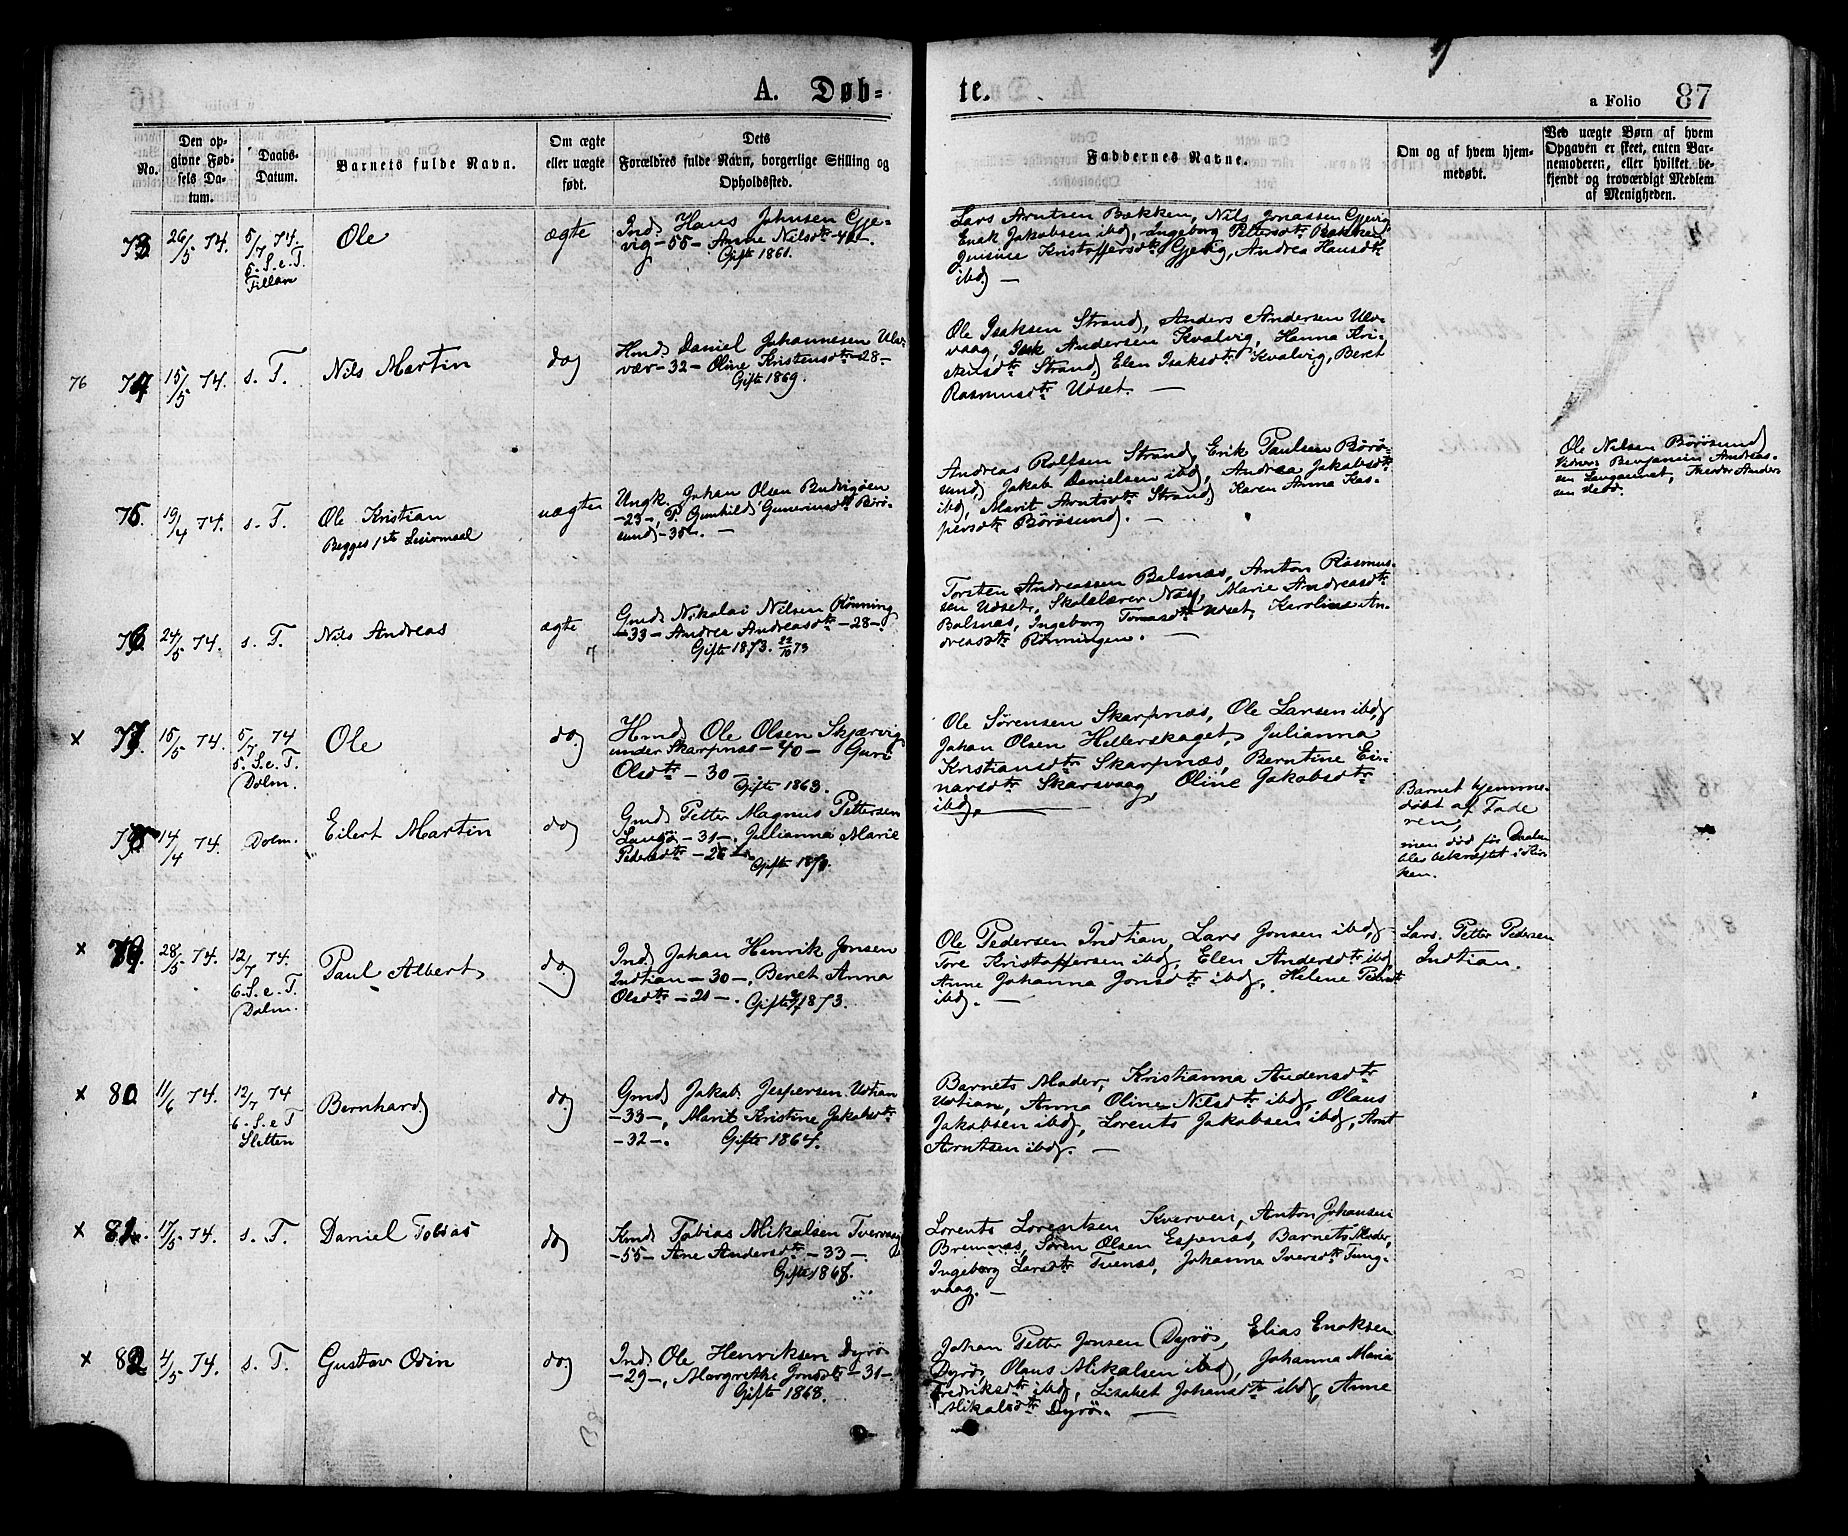 A. Døb=
te.
a Folio 87
No.
Den op-
givne Fød-
sels Da-
tum.
Daabs-
Datum.
Barnets fulde Navn.
Om ægte
eller uægte
født.
Dets
Forældres fulde Navn, borgerlige Stilling og
Opholdssted.
Faddernes Navne.
Om og af hvem hjem-
medøbt.
Ved uægte Børn af hvem
Opgaven er skeet, enten Bar-
nemoderen, eller hvilket be-
kjendt og troværdigt Medlem
af Menigheden.
73.
26/5 74.
5/7 74.
5. S. e. T.
Fillan
Ole
ægte
Ind. Hans Johnsen Gje-
vig -55- Anne Nilsdtr -
Gifte 1861.
Lars Arntsen Bækken, Nils Jonassen Gjevig
Enok Jakobsen ibd, Ingeborg Petersdtr Bækken
Kristoffersdtr Gjevig, Andrea Hansdtr
ibd. -
76
74
15/5 74.
s. T.
Nils Martin
do
Hmd. Daniel Johannesen Ulv-
vær -32- Oline Kristensdtr -28-
Gifte 1869.
Ole Isaksen Strand, Anders Andersen Ulv-
vaag, Isak Andersen Kvalvig, Hanna Kri-
stensdtr Strand, Elen Isaksdtr Kvalvig, Beret
Rasmusdtr Udset. -
75.
19/4 74.
s. T.
Ole Kristian
Begges 1ste Leiermaal
uægte
Ungk. Johan Olsen Budvigöen
-23-, P. Gunhild Gunnerusdtr Börö-
sund -35-. -
Andreas Rolfsen Strand, Erik Paulsen Börö-
sund, Jakob Danielsen ibd, Andrea Jakobsdtr
ibd, Marit Arntsdtr Strand, Karen Anna Kas-
persdtr Börösund. -
Ole Nilsen Börösund
Vidner: Benjamin Andreas-
sen, Theodor Ander-
sen
76.
24/5 74.
s. T.
Nils Andreas
ægte
7
Gmd. Nikolai Nilsen Rönning
-33- Andrea Andreasdtr -28-.
Gifte 1873. 22/10 73
Torsten Andreassen Balsnæs, Anton Rasmus-
sen Udset, Skolelærer Næss, Marie Andreasdtr
Balsnæs, Ingeborg Tomasdtr Udset, Karoline An-
dreasdtr Rönningen. -
x
77.
15/5 74.
5/7 74
5. S. e. T.
Dolm.
Ole
do
Hmd. Ole Olsen Skjærvig
under Skarpnæs -40- Guri
Olsdtr -30-.
Gifte 1863.
Ole Sørensen Skarpnæs, Ole Larsen ibd,
Johan Olsen Hellerskaget, Julianna
Kristiansdtr Skarpnæs, Berntine Ei-
narsdtr Skarsvaag, Oline Jakobsdtr
ibd.
78
14/4 74.
Dolm.
Eilert Martin
do
Gmd. Petter Magnus Pettersen
-31-. Julianna Marie
Pedersdtr -26-.
Gifte
Barnet hjemme-
döbt af Fade
ren,
men död før Daaben
blev bekræftet i Kir-
ken.
x
79.
28/5 74.
12/7 74.
6. S. e. T.
Dolm.
Paul Albert
do
Ind. Johan Henrik Jonsen
Indtian -30-. Beret Anna
Olsdtr -20-. Gifte 1873.
Ole Pedersen Indtian, Lars Jonsen ibd,
Tore Kristoffersen ibd, Elen Andersdtr ibd,
Anne Johanna Jonsdtr ibd, Helene
ibd. -
Lars Petter Pedersen
Indtian.
x
80
11/6 74.
12/7 74
6. S. e. T
Sletten
Bernhard
do
Gmd. Jakob Jespersen Udtian
-33-, Marit Kristine Jakobsdtr
-32-. Gifte 1864.
Barnets Moder, Kristianna Andersdtr
Udtian, Anna Oline Nilsdtr ibd, Olaus
Jakobsen ibd, Lorents Jakobsen ibd, Arnt
Arntsen ibd. -
x
81.
17/5 74.
s. T.
Daniel Tobias
do
Kmd. Tobias Mikalsen Tvervaag
-55- Ane Andersdtr -33-
Gifte 1867.
Lorents Lorentsen Kverven, Anton Johansen
Bremnæs, Sören Olsen Espenæs, Barnets Moder,
Ingeborg Larsdtr Tuenæs, Johanna Iversdtr Tung-
vaag. -
x
82
4/5 74.
s. T.
Gustav Odin
do
Ind. Ole Henriksen Dyrö
-29-, Margrethe Jonsdtr -31-
Gifte 1868.
Johan Petter Jonsen Dyrö, Elias Enoksen
Dyrö, Olaus Mikalsen ibd, Johanna Maria
Fredriksdtr ibd, Lisabet Johansdtr ibd, Anne
Mikalsdtr Dyrö. -